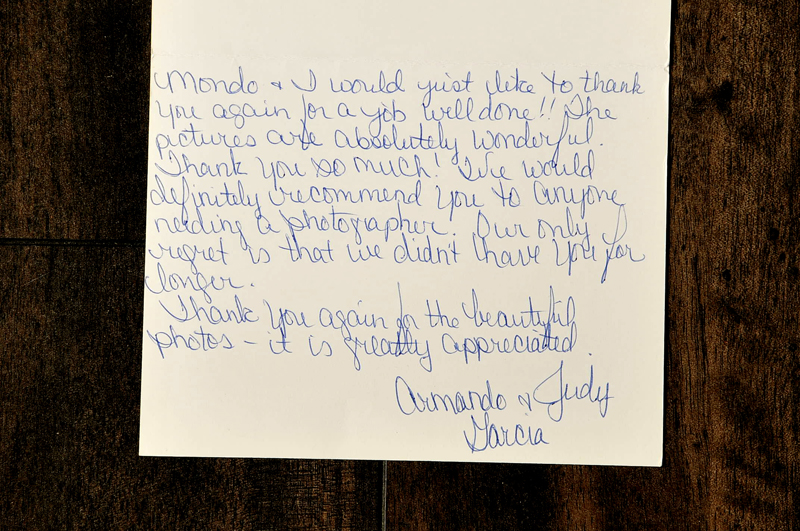 Mondo & I would just like to thank
you again for a job well done!! The
pictures are absolutely wonderful.
Thank you so much! We would
definitely recommend you to anyone
needing a photographer. Our only
regret is that we didn't have you for
longer.
Thank you again for the beautiful
photos - it is greatly appreciated.
Armando & Judy
Garcia